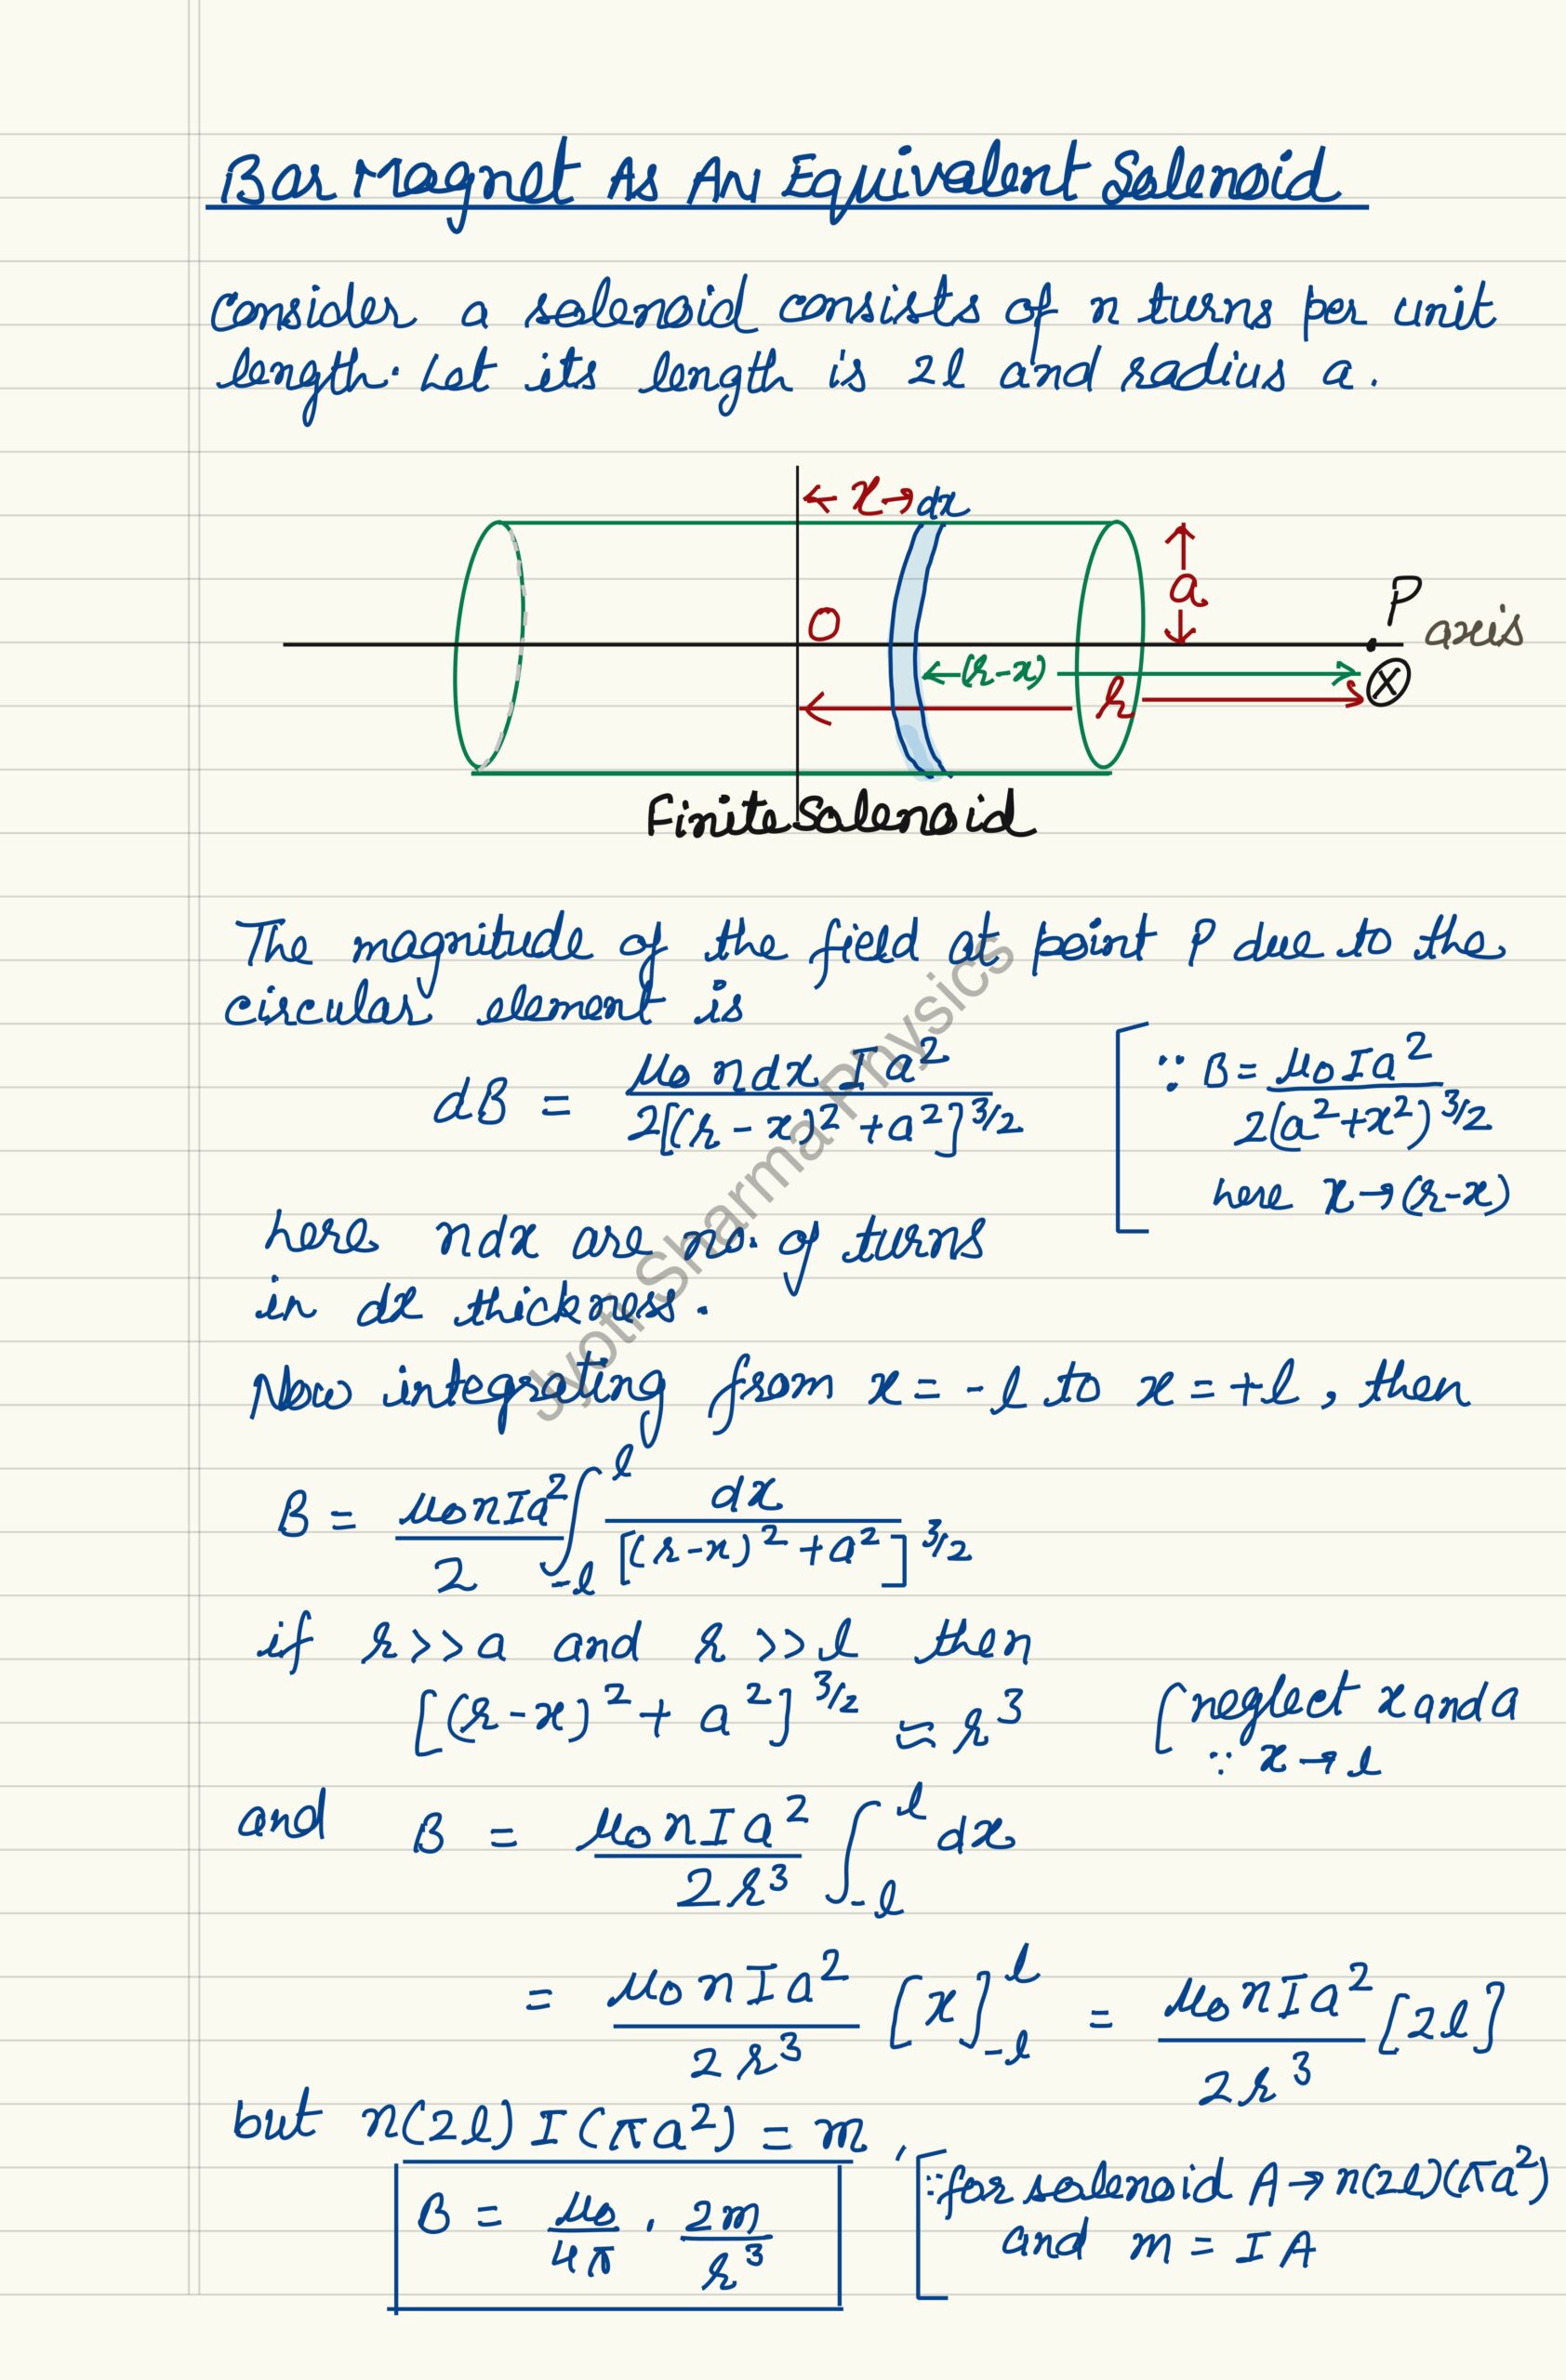 Bar Magnet As An Equivalent Solenoid
Consider a solenoid consists of n turns per unit
length. Let its length is 2l and radius a.
← x → dx
a
O
P
axis
←(r-x)
r
X
Finite Solenoid
The magnitude of the field at point P due to the
circular element is
dB = μ₀ ndx I a² / 2[(r-x)² + a²]^3/2
[∵ B = μ₀Ia² / 2(a²+x²)^3/2
here x→(r-x)
here ndx are no. of turns
in dx thickness.
Now integrating from x = -l to x = +l, then
B = μ₀nIa²/2 ∫_-l^l dx / [(r-x)² + a²]^3/2
if r>>a and r>>l then
[(r-x)² + a²]^3/2 ≈ r³
[neglect x and a
∵ x→l
and B = μ₀nIa²/2r³ ∫_-l^l dx
= μ₀nIa²/2r³ [x]_-l^l = μ₀nIa²/2r³ [2l]
but n(2l)I(πa²) = m,
B = μ₀/4π . 2m/r³
[∵ for solenoid A→n(2l)(πa²)
and m = IA
Jyoti Sharma Physics